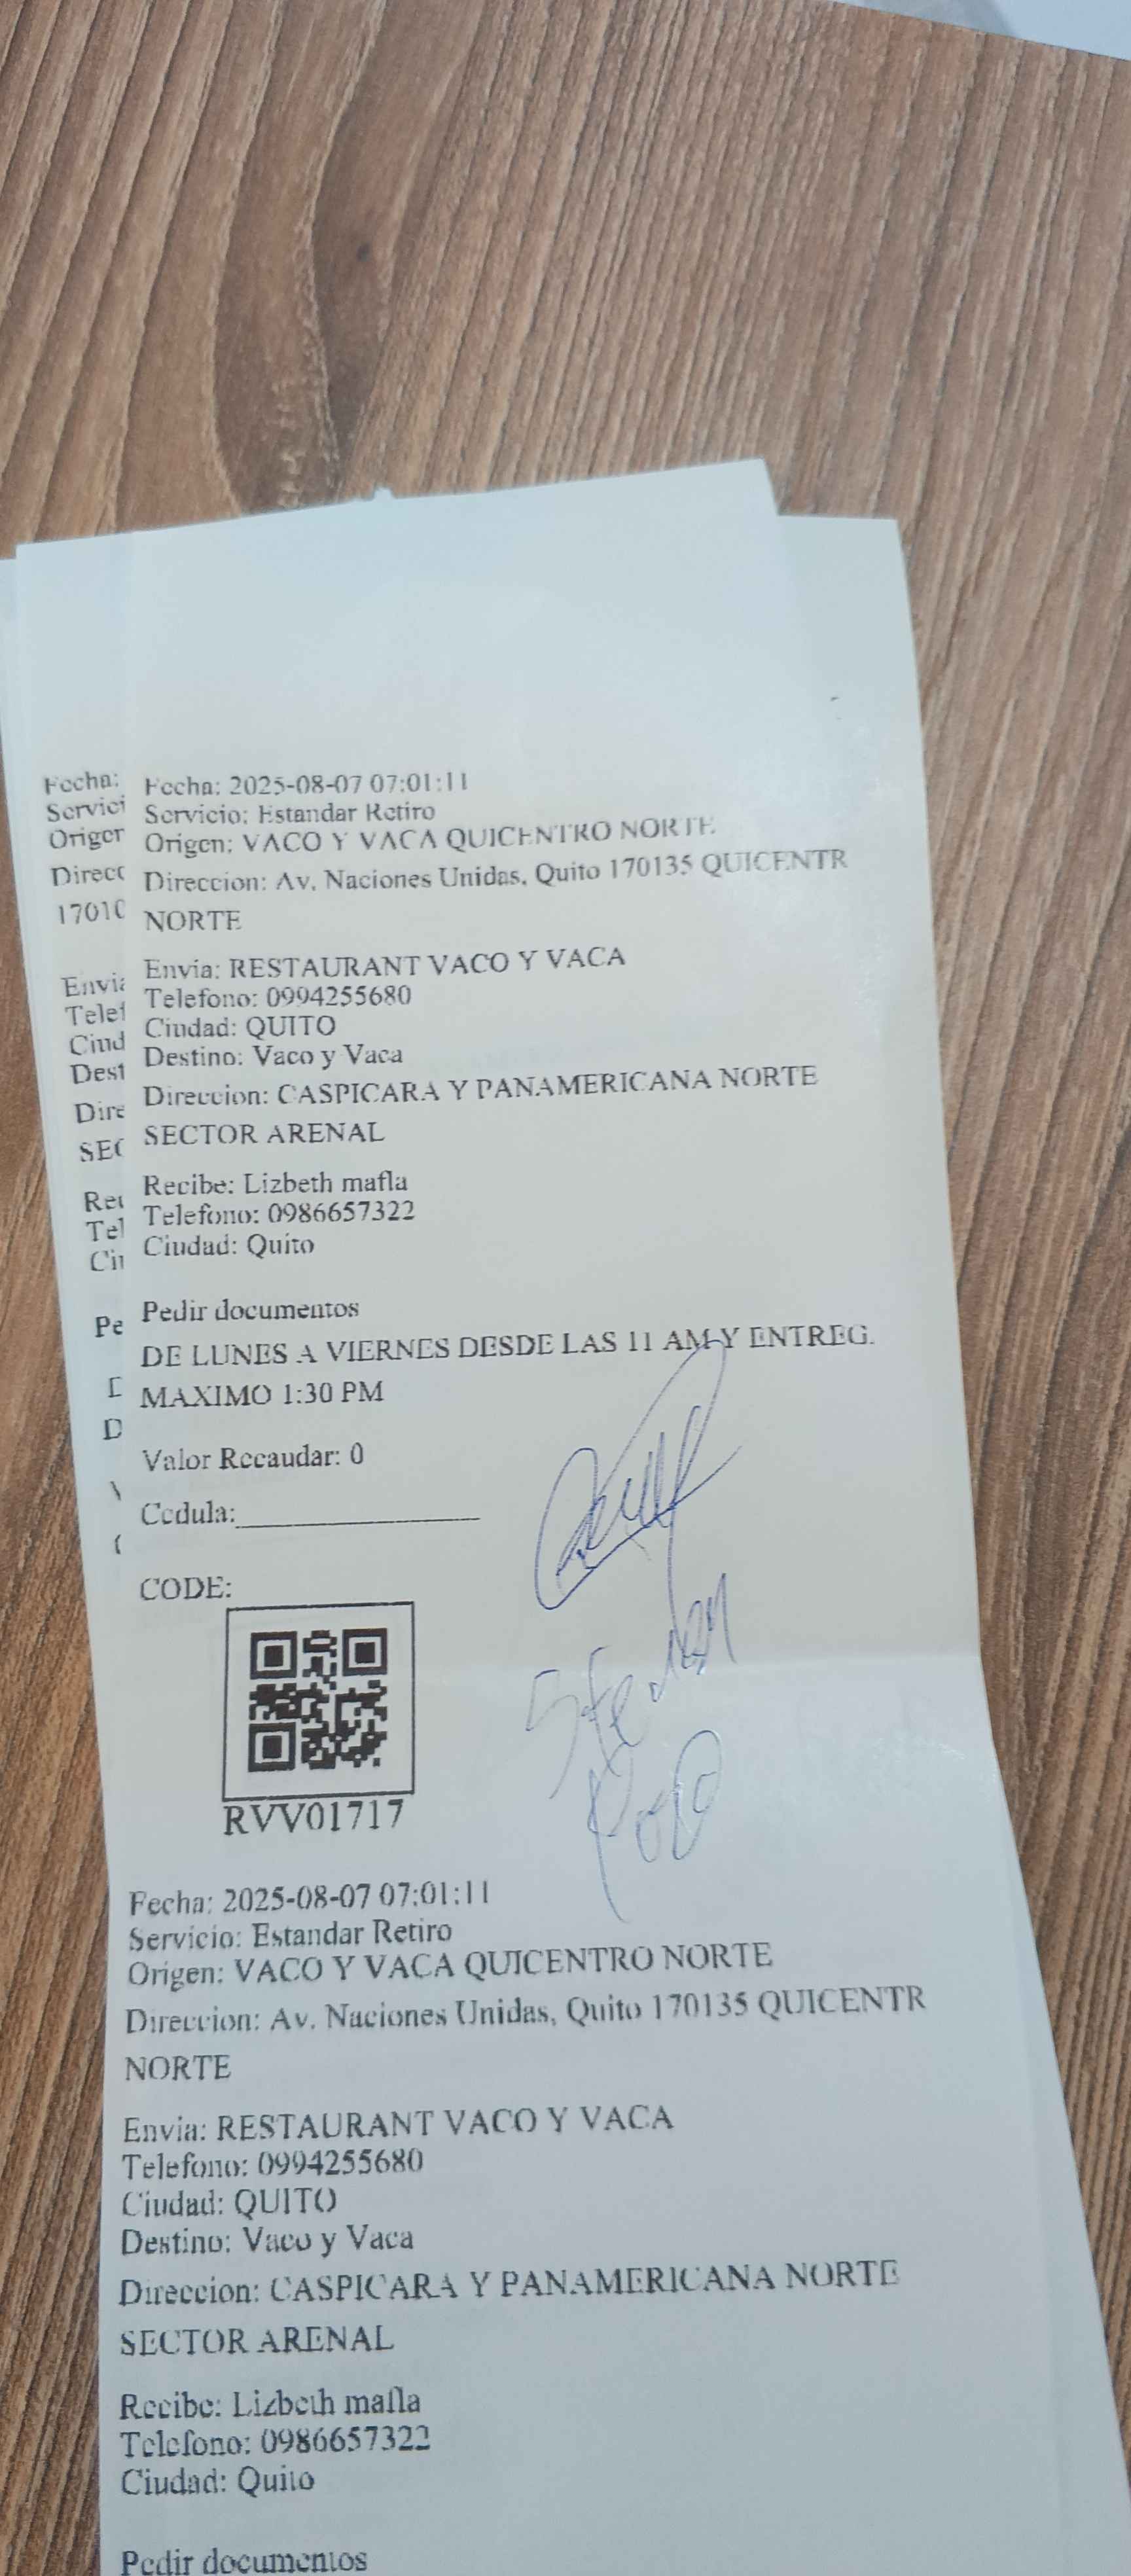 Fecha:
Servici
Origen
Direcc
17010
Envia
Telef
Ciud
Dest
Dire
SEC
Rec
Tel
Ciu
Pe
D
D
Fecha: 2025-08-07 07:01:11
Servicio: Estandar Retiro
Origen: VACO Y VACA QUICENTRO NORTE
Direccion: Av. Naciones Unidas, Quito 170135 QUICENTR
NORTE
Envia: RESTAURANT VACO Y VACA
Telefono: 0994255680
Ciudad: QUITO
Destino: Vaco y Vaca
Direccion: CASPICARA Y PANAMERICANA NORTE
SECTOR ARENAL
Recibe: Lizbeth mafla
Telefono: 0986657322
Ciudad: Quito
Pedir documentos
DE LUNES A VIERNES DESDE LAS 11 AM Y ENTREG.
MAXIMO 1:30 PM
Valor Recaudar: 0
Cedula:
CODE:
RVV01717
Fecha: 2025-08-07 07:01:11
Servicio: Estandar Retiro
Origen: VACO Y VACA QUICENTRO NORTE
Direccion: Av. Naciones Unidas, Quito 170135 QUICENTR
NORTE
Envia: RESTAURANT VACO Y VACA
Telefono: 0994255680
Ciudad: QUITO
Destino: Vaco y Vaca
Direccion: CASPICARA Y PANAMERICANA NORTE
SECTOR ARENAL
Recibe: Lizbeth mafla
Telefono: 0986657322
Ciudad: Quito
Pedir documentos